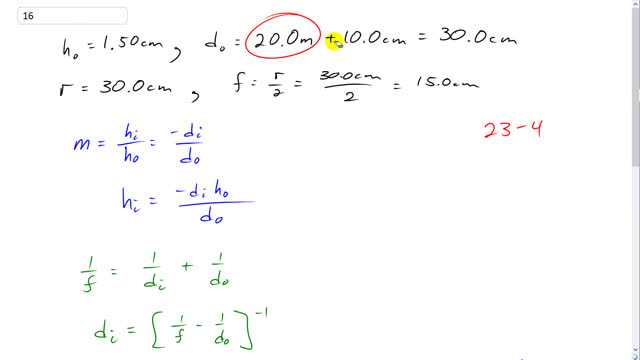 16
h₀ = 1.50cm, d₀ = 20.0m + 10.0cm = 30.0cm
r = 30.0cm, f = r/2 = 30.0cm/2 = 15.0cm
23-4
m = hᵢ/h₀ = -dᵢ/d₀
hᵢ = -dᵢ h₀/d₀
1/f = 1/dᵢ + 1/d₀
dᵢ = [1/f - 1/d₀]⁻¹